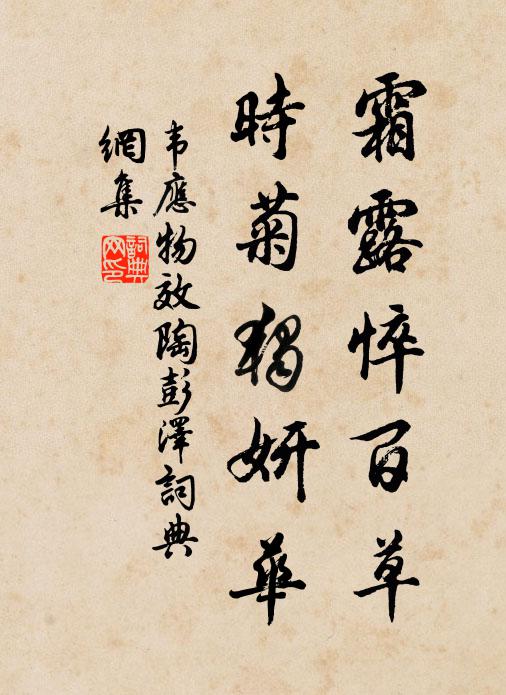 霜露悴百草
時菊獨妍華
韦應物效陶彭澤詞典
網集
詞典
网印